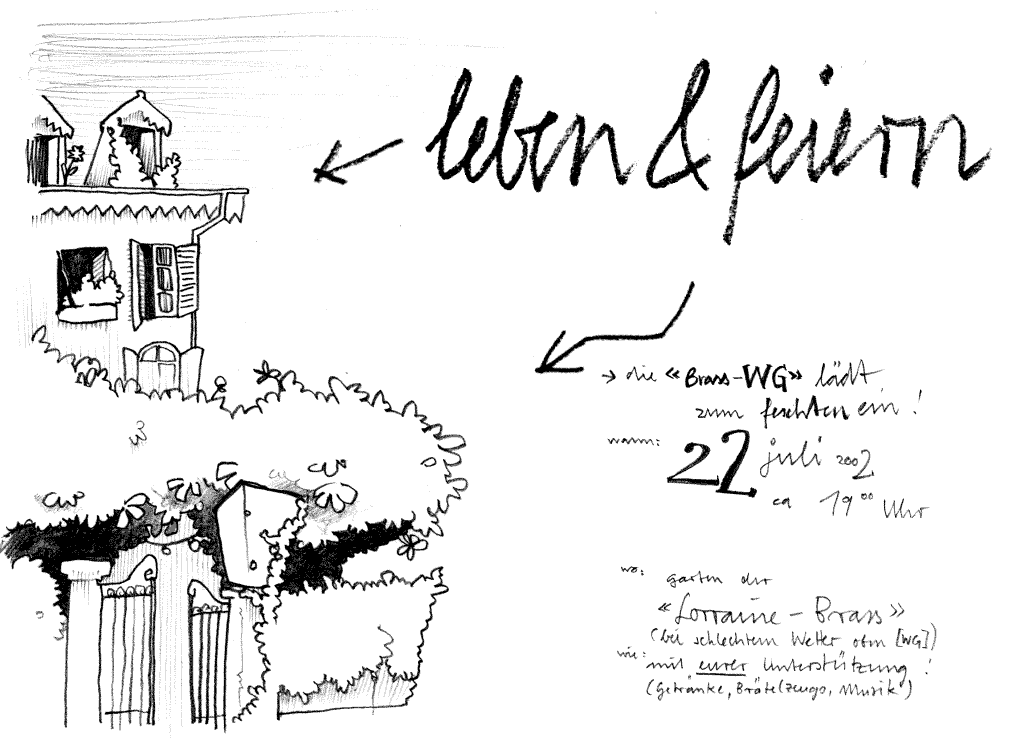 leben & feiern
→ die «Brass-WG» lädt
zum feschten ein!
wann: 22 juli 2002
ca 19⁰⁰ Uhr
wo: garten der
«Lorraine-Brass»
(bei schlechtem Wetter obm [WG])
wie: mit eurer Unterstützung!
(Getränke, Brätelzeugs, Musik)